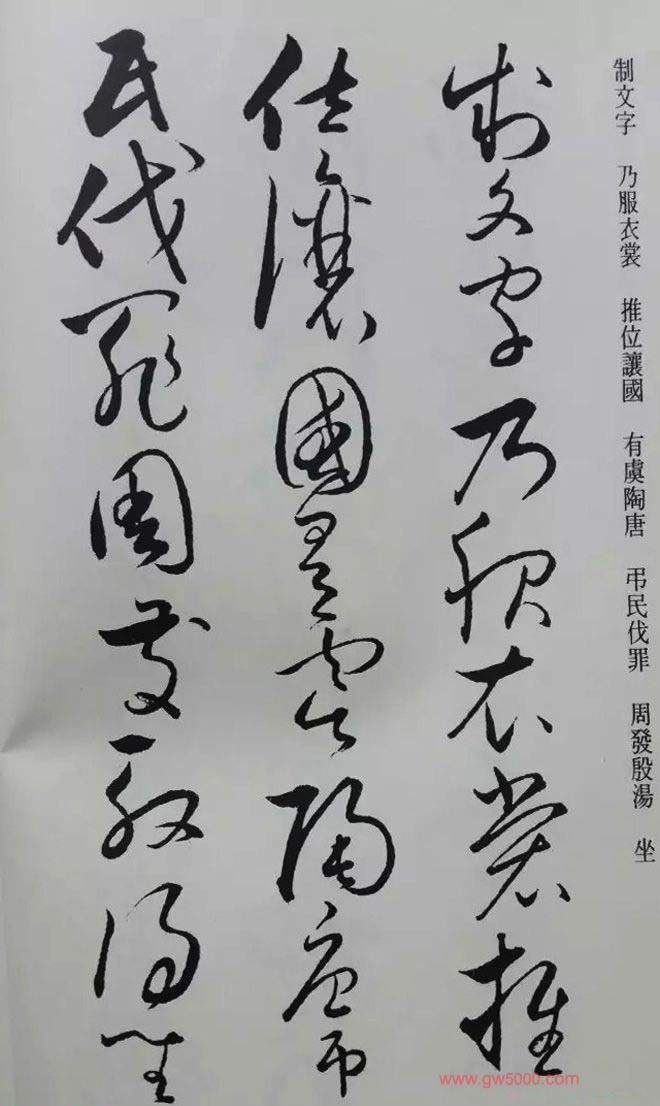 制文字 乃服衣裳 推位讓國 有虞陶唐 弔民伐罪 周發殷湯 坐
制文字乃服衣裳推
位讓國有虞陶唐弔
民伐罪周發殷湯坐
www.gw5000.com